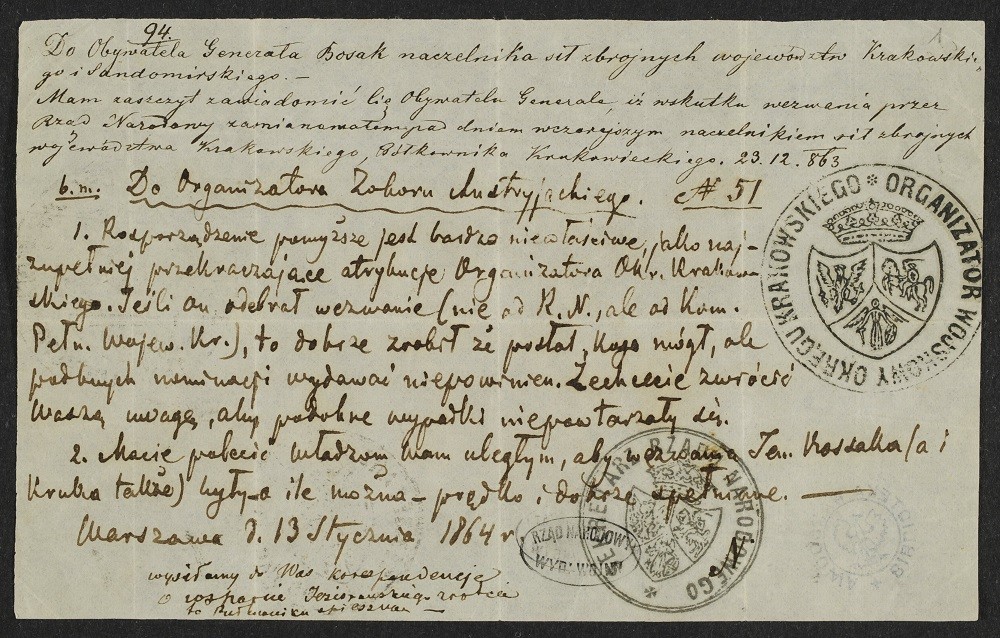 94.
1
Do Obywatela Generała Bosak naczelnika sił zbrojnych województw Krakowskie-
go i Sandomirskiego. —
Mam zaszczyt zawiadomić Cię Obywatelu Generale, iż wskutku wezwania przez
Rząd Narodowy zamianowałem pod dniem wczorajszym naczelnikiem sił zbrojnych
województwa Krakowskiego, Półkownika Krukowieckiego. 23.12.863
b.m. Do Organizatora Zaboru Austryjackiego. № 51
1. Rozporządzenie powyższe jest bardzo niewłaściwe, jako naj-
zupełniej przekraczające atrybucje Organizatora Okr. Krakow-
skiego. Jeśli on odebrał wezwanie (nie od R.N., ale od Kom.
Pełn. Wojew. Kr.), to dobrze zrobił że posłał, kogo mógł, ale
podobnych nominacji wydawać niepowinien. Zechcecie zwrócić
Waszą uwagę, aby podobne wypadki niepowtarzały się.
2. Macie polecić władzom Wam uległym, aby wezwania Jen. Bossaka (a i
Kruka także) były o ile można prędko i dobrze spełniane. —
Warszawa d. 13 Stycznia 1864 r
wysyłamy do Was korespondencję
o
—
ORGANIZATOR WOJSKOWY OKRĘGU KRAKOWSKIEGO *
RZĄD NARODOWY
WYDZ. WOJNY
RZĄDU NARODOWEGO